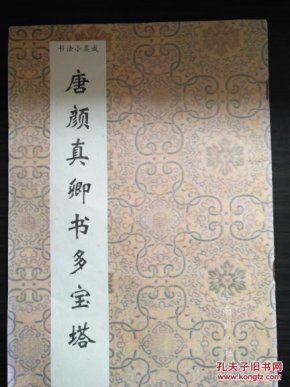 书法小集成
唐颜真卿书多宝塔
孔夫子旧书网
www.kongfz.com